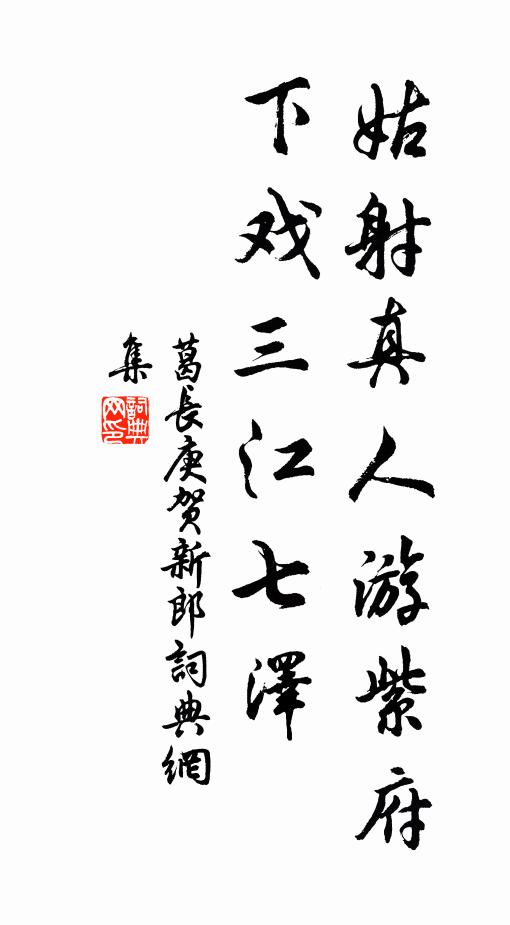 姑射真人游紫府
下戏三江七澤
葛長庚贺新郎詞典網
集
詞典
网印